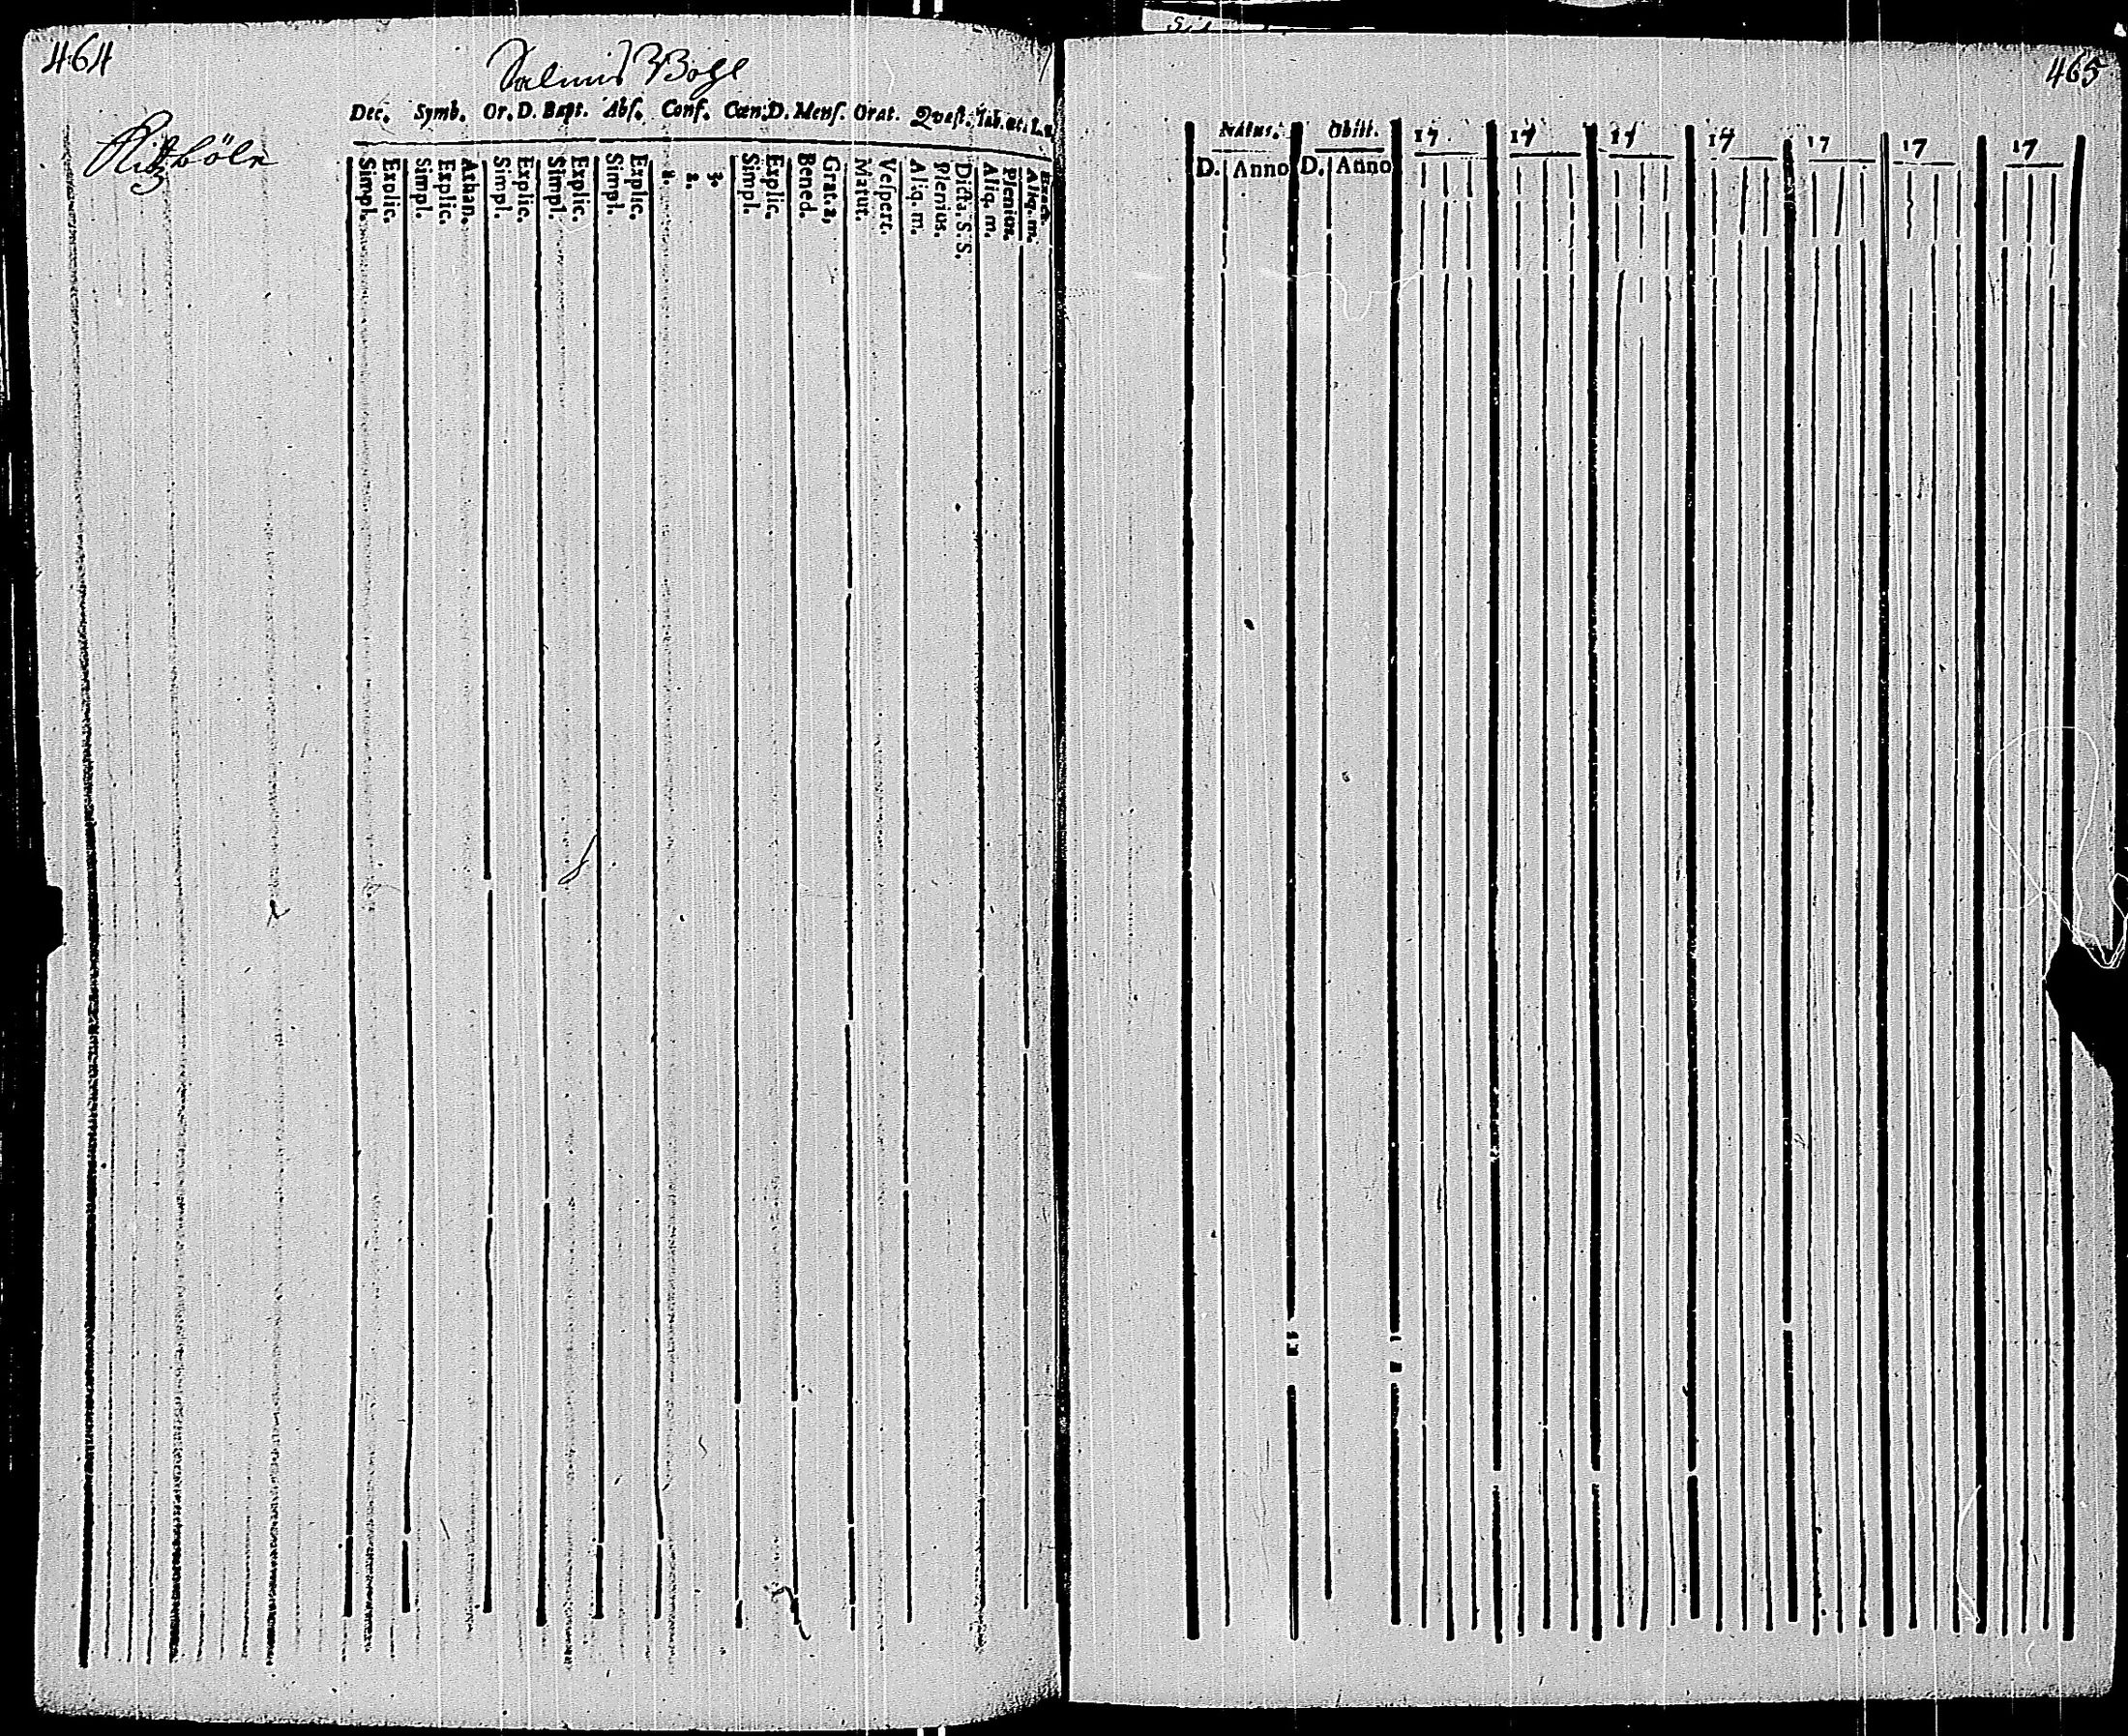 464
Salmis Bohl
Dec. Symb. Or. D. Bapt. Abs. Conf. Cœn. D. Mens. Orat. Quæst. Tab. œc.
Ritzböle
Simpl.
Explic.
Simpl.
Explic.
Athan.
Simpl.
Explic.
Simpl.
Explic.
Simpl.
Explic.
1.
2.
3.
Simpl.
Explic.
Bened.
Grat. a.
Matut.
Vespert.
Aliq. m.
Plenius.
Dicta. S. S.
Aliq. m.
Plenius.
Aliq. m.
Exact.
465
Natus. Obiit. 17 17 17 17 17 17 17
D. Anno D. Anno